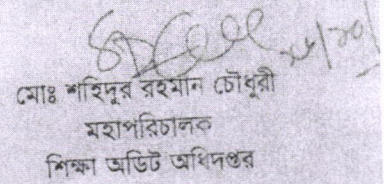 মোঃ শহিদুর রহমান চৌধুরী
মহাপরিচালক
শিক্ষা অডিট অধিদপ্তর